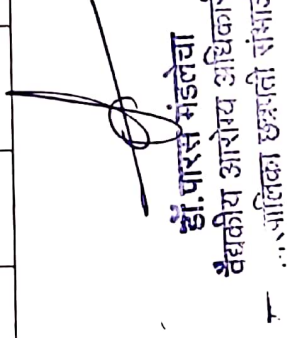 डॉ. पारस मंडलेचा
वैद्यकीय आरोग्य अधिकारी
छत्रपती